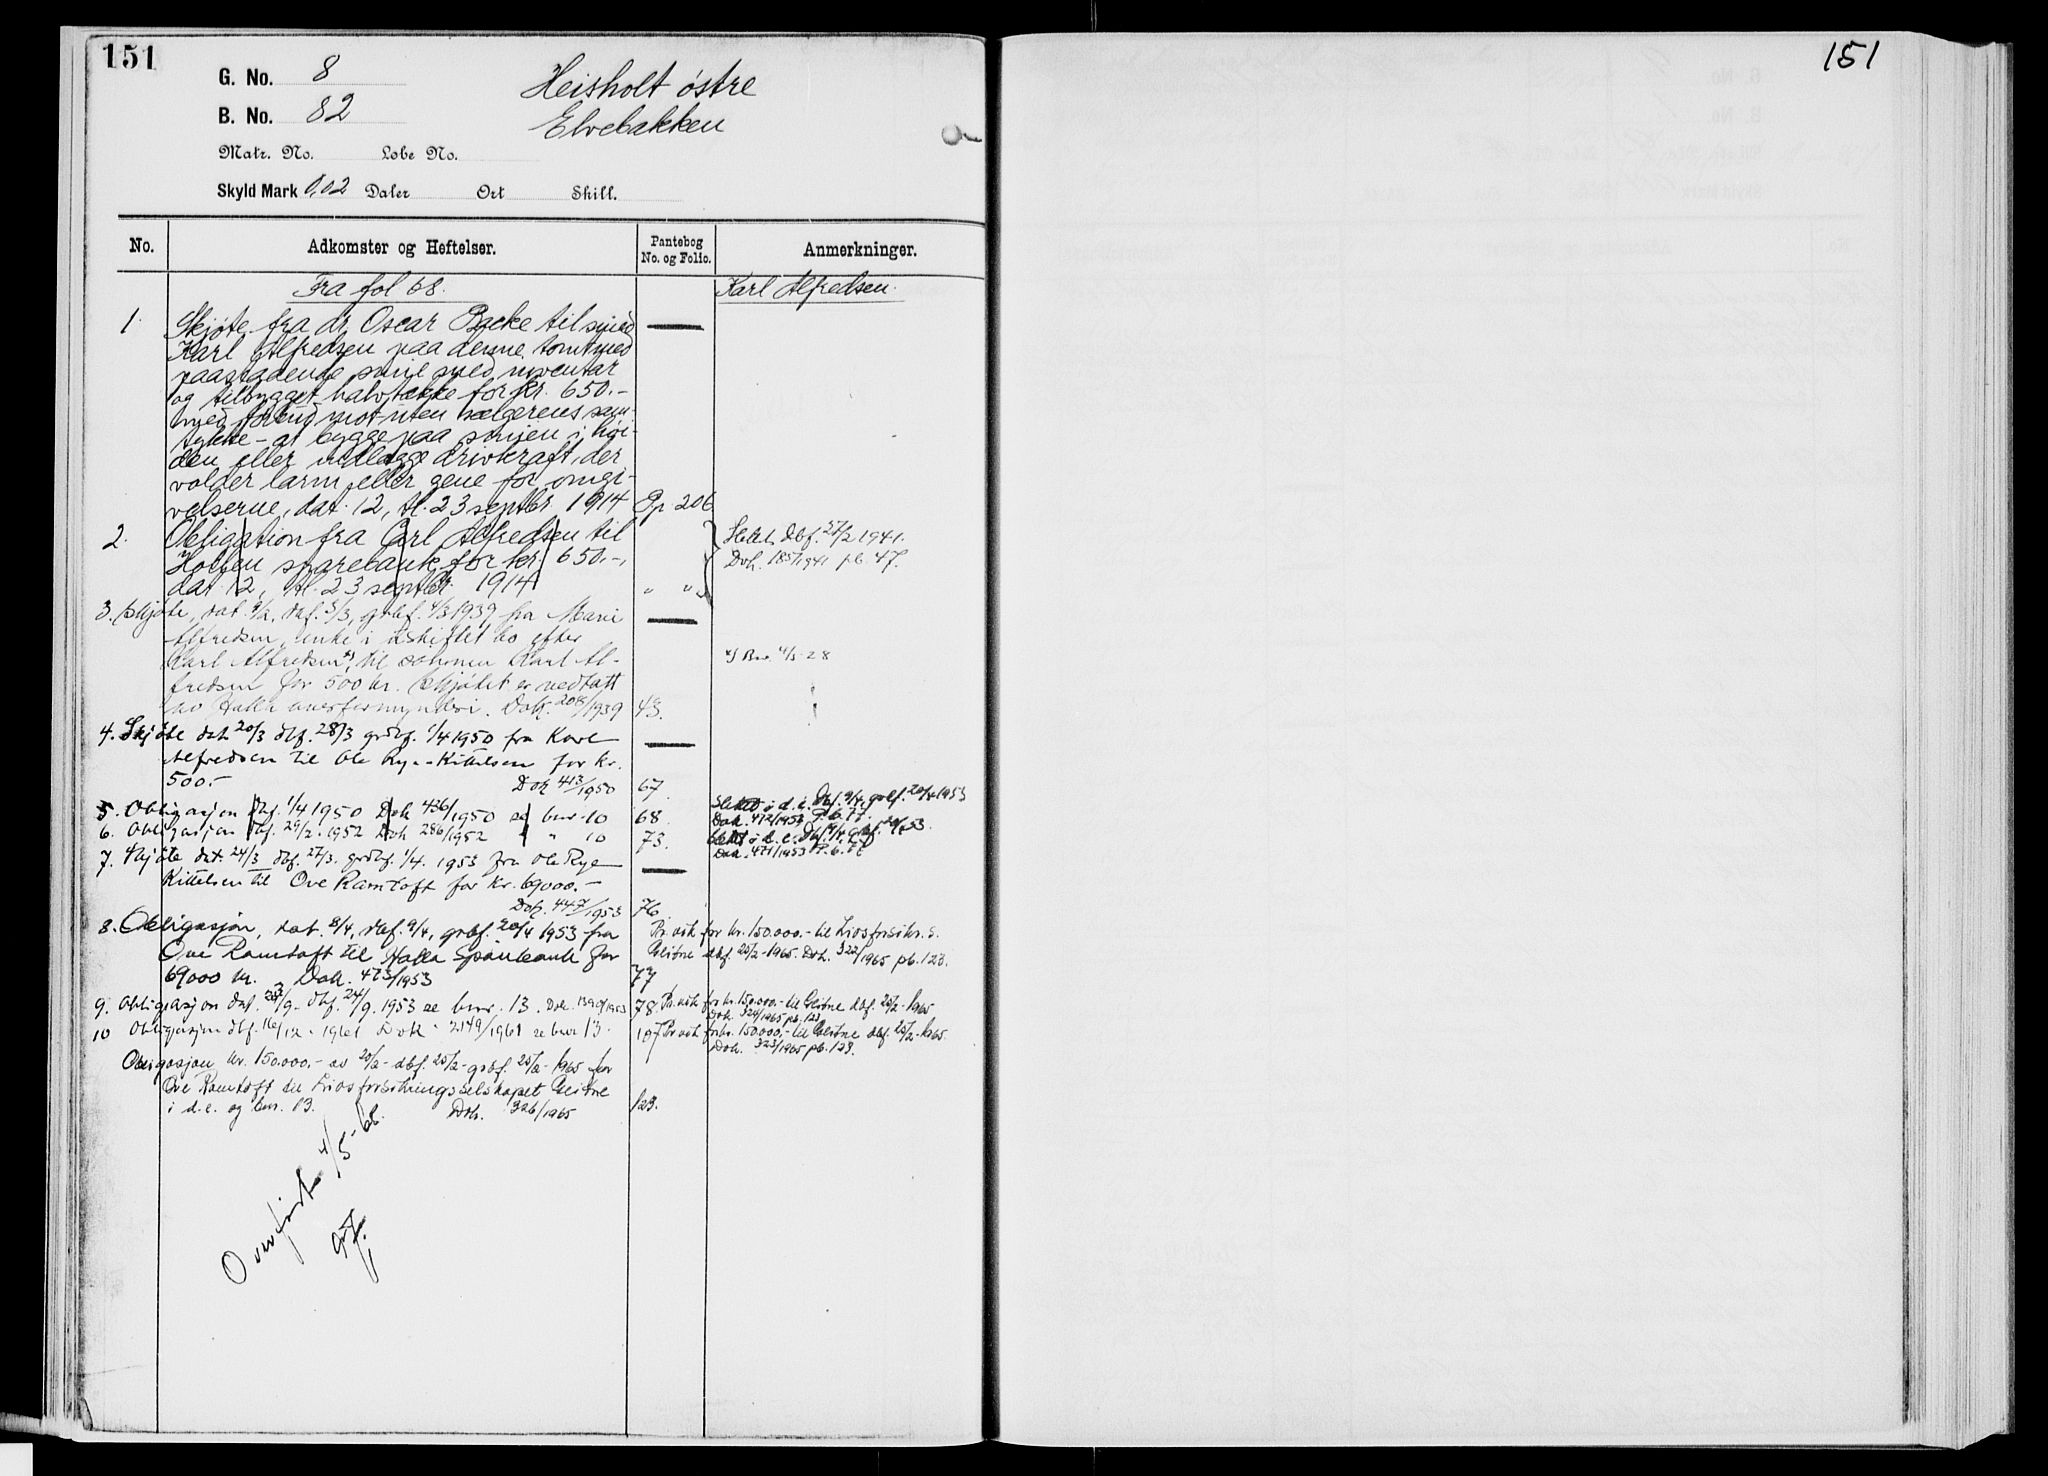 151
G. No. 8
B. No. 82
Heisholt østre
Elvebakken
Matr. No. Løbe No.
Skyld Mark 0,02 Daler Ort Skill.
No. Adkomster og Heftelser. Pantebog No. og Folio. Anmerkninger.
Fra fol 68. Karl Alfredsen.
1. Skjøte fra dr. Oscar Backe til smed
Karl Alfredsen paa denne tomt med
paastaaende smie med inventar
og tilbygget halvtække for kr. 650.-
med forbud mot uten sælgerens sam-
tykke - at bygge paa smien i høi-
den eller indlægge drivkraft, der
volder larm eller gene for omgi-
velserne, dat. 12, tl. 23 septbr 1914 Pp 206
2. Obligation fra Carl Alfredsen til
Holden sparebank for kr. 650.-,
dat. 12, tl. 23 septbr. 1914 " "
Slettet, dbf. 1941.
Dok. 185/1941 pb. 47.
3. Skjøte, dat. dbf. 3/3, grbf. 4/3 1939 fra Marie
Alfredsen, enke i uskiftet bo efter
Karl Alfredsen x), til sønnen Karl Al-
fredsen for 500 kr. Skjøtet er vedtatt
av Holla overformynderi. Dok. 208/1939 43.
x) Bev. 4/5-28
4. Skjøte dat 20/3 dbf. 28/3 grdbf. 1/4 1950 fra Karl
Alfredsen til Ole Rye-Kittelsen for kr.
500.- Dok 413/1950 67.
5. Obligasjon dbf. 1/4 1950 Dok 436/1950 se bnr. 10 68.
Slettet i d. e. Dbf. 9/4, grbf. 20/4 1953
Dok. 472/1953 P.b. 77.
6. Obligasjon dbf. 29/2. 1952 Dok 286/1952 " " 10 73.
Slettet i d. e. Dbf. 9/4, grbf. 20/4 53.
Dok. 471/1953 P.b.
7. Skjøte dat. 24/3 dbf. 27/3. grdbf. 1/4. 1953 fra Ole Rye
Kittelsen til Ove Ramtoft for kr. 69000.-
Dok. 447/1953 76
8. Obligasjon, dat. 8/4, dbf. 9/4, grbf. 20/4 1953 fra
Ove Ramtoft til Holla Sparebank for
69000 kr. Dok. 473/1953 77
Pr. vik for kr. 150.000.- til Livsforsikr. s.
Gleitne dbf. 25/2-1965. Dok. 322/1965 pb. 123.
9. Obligasjon dat. dbf. 24/9. 1953 se bnr. 13. Dok. 1390/1953 78.
Pr. vik for kr. 150.000.- til Gleitne dbf. 25/2-1965
Dok. 324/1965 pb. 123
10 Obligasjon dbf. 16/12-1961 Dok. 2149/1961 se bnr 13. 107
Pr. vik for kr. 150.000,- til Gleitne dbf. 25/2-1965.
Dok. 323/1965 pb. 123.
Obligasjon kr. 150.000,- av dbf. 25/2- grbf. 25/2- 1965 fra
Ove Ramtoft til Livsforsikringsselskapet Gleitne
i d. e. og bnr. 13. Dok. 326/1965 123.
Overført 4/5-66.
151